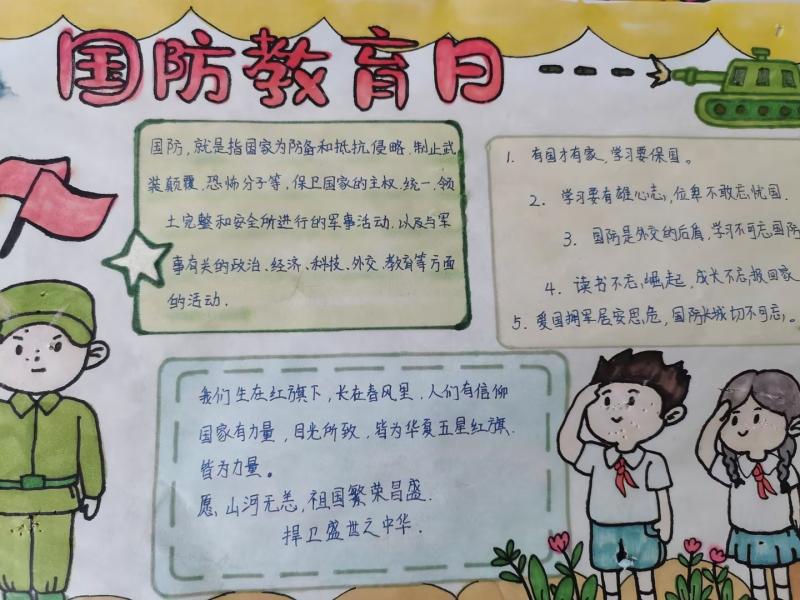 国防教育日
国防，就是指国家为防备和抵抗侵略、制止武
装颠覆、恐怖分子等，保卫国家的主权、统一、领
土完整和安全所进行的军事活动，以及与军
事有关的政治、经济、科技、外交、教育等方面
的活动．
1. 有国才有家，学习要保国。
2. 学习要有雄心志，位卑不敢忘忧国．
3. 国防是外交的后盾，学习不可忘国防
4. 读书不忘崛起，成长不忘报回家
5. 爱国拥军居安思危，国防长城切不可忘。
我们生在红旗下，长在春风里，人们有信仰
国家有力量，目光所致，皆为华夏五星红旗、
皆为力量。
愿，山河无恙，祖国繁荣昌盛．
捍卫盛世之中华．